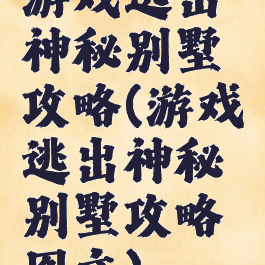 游戏逃出
神秘别墅
攻略(游戏
逃出神秘
别墅攻略
图文)